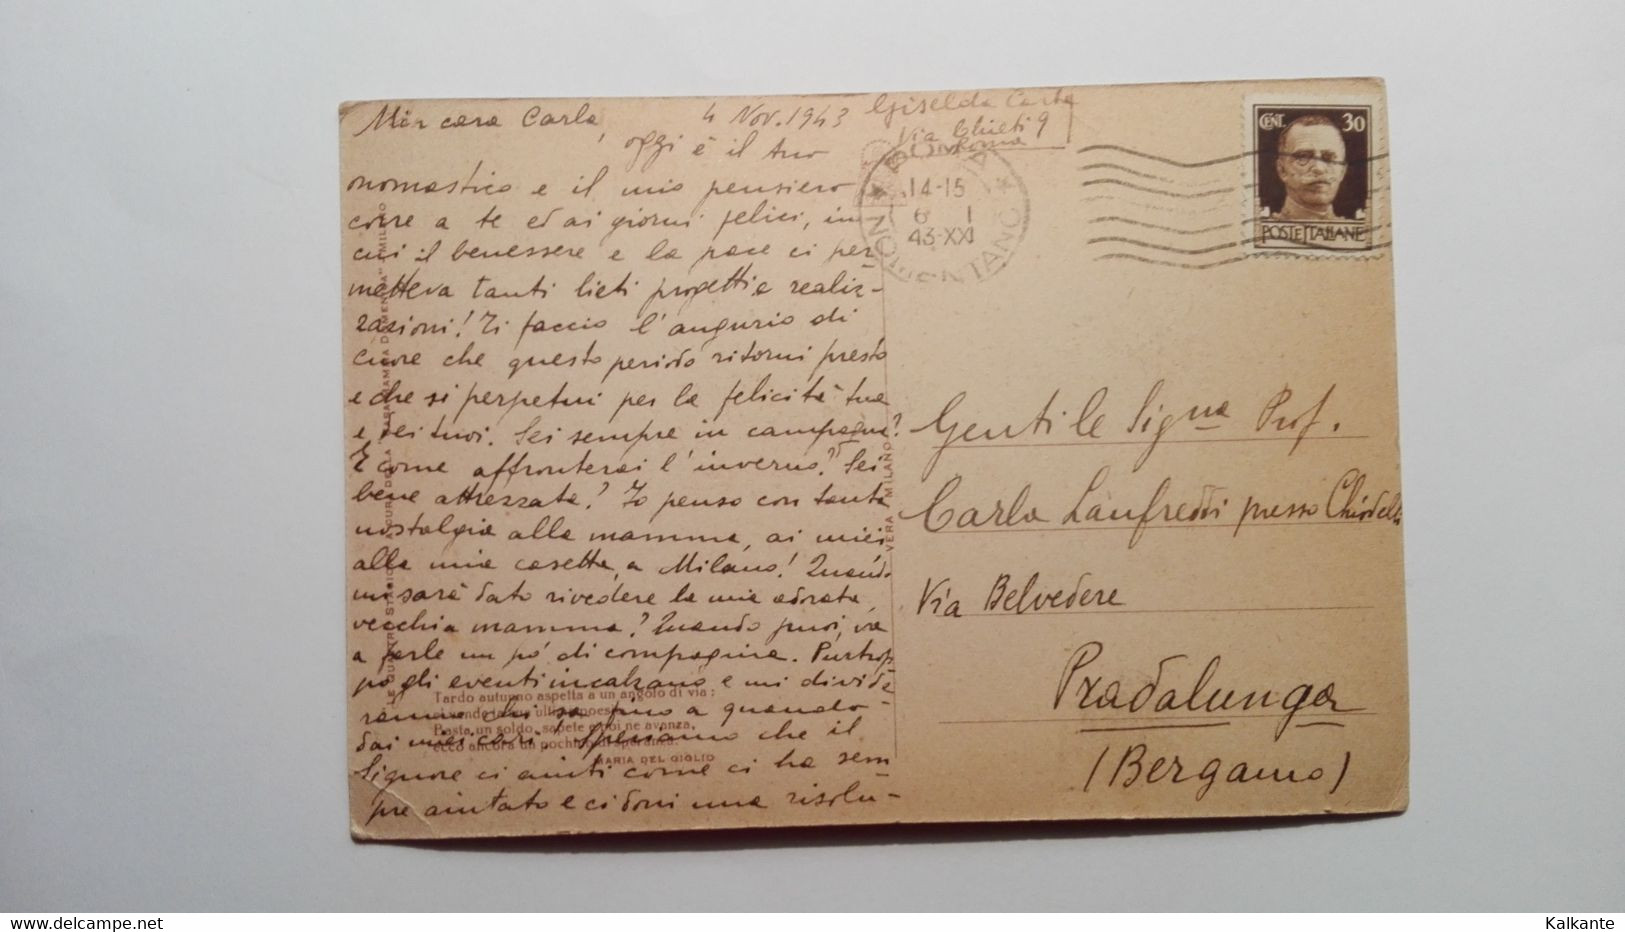 Mia cara Carla,
4 Nov. 1943
oggi è il tuo
onomastico e il mio pensiero
corre a te ed ai giorni felici, in
cui il benessere e la pace ci per-
metteva tanti lieti progetti e realiz-
zazioni! Ti faccio l'augurio di
cuore che questo periodo ritorni presto
e che si perpetui per la felicità tua
e dei tuoi. Sei sempre in campagna?
E come affronterai l'inverno? Sei
bene attrezzata? Io penso con tanta
nostalgia alla mamma, ai miei
alla mia casetta, a Milano! Quando
mi sarà dato rivedere la mia adorata,
vecchia mamma? Quando puoi, va
a farle un pò di compagnia. Purtrop-
po gli eventi incalzano e mi divide-
ranno chi sa fino a quando
dai miei cari! Speriamo che il
Signore ci aiuti come ci ha sem
pre aiutato e ci doni una risolu-
Tardo autunno aspetta a un angolo di via:
Basta un soldo, sapete e poi ne avanza,
ecco ancora un pochino di speranza.
MARIA DEL GIGLIO
VERA / MILANO
Giselda Carta
Via Chieti 9
Roma
14-15
6 I
43-XXI
CENT. 30
POSTE ITALIANE
Gentile Signa Prof.
Carla Lanfreddi presso Chiodelli
Via Belvedere
Pradalunga
(Bergamo)
Kalkante